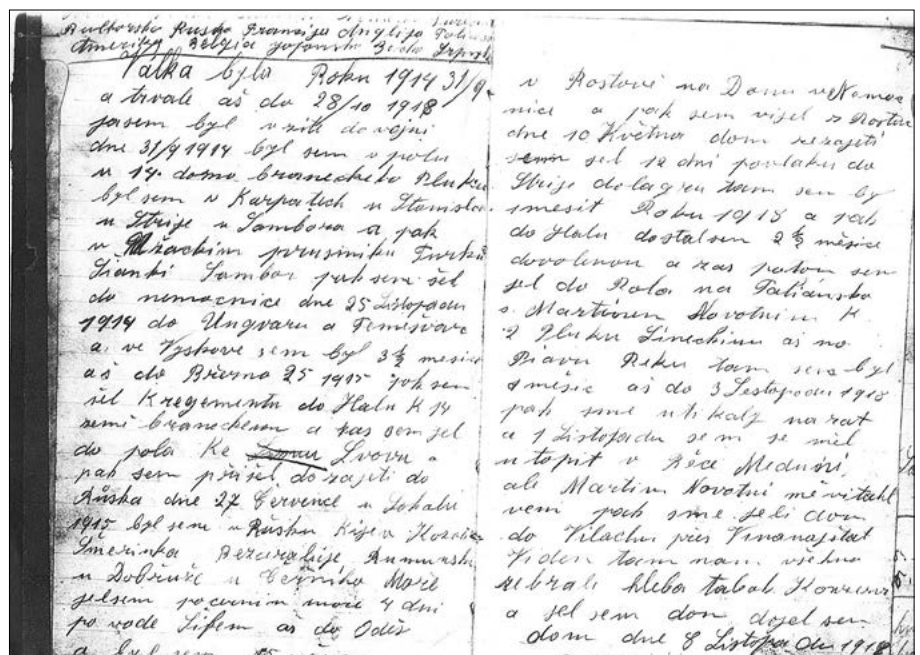 Rusko Francija Anglija
Amerika Belgia Japonsko
Válka byla Roku 1914 31/9
a trvale aš do 28/10 1918
jasem byl vzite do vojni
dne 31/9 1914 byl sem v polu
u 14. domo braneckeho Pluku
byl sem v Karpatech u Stanislav
u Strije u Sambora a pak
v prusmiku Turku
Sianki Sambor pak sem šel
do nemocnice dne 25 Listopadu
1914 do Ungvaru a Temesvare
a. ve Vyskove sem byl 3½ mesice
aš do Března 25 1915 pak sem
šel K regementu do Halu K 14
zemi braneckemu a zas sem jel
do pola Ke Lvovu a
pak sem přišel do zajeti do
Růska dne 27 Července u Sokalu
1915 byl sem v Růsku Kijev
Šmerinka Bezarabije Rumunsku
u Dobruže u Černiho Moře
jel sem po cernim moře 4 dni
po vode Šifem aš do Odes
a byl sem
v Rostove na Donu v Nemoc
nice a pak sem vijel z Rostu
dne 10 Května dom ze zajeti
sem jel 12 dni po vlaku do
Strije do lagru tam sem by
1 mesic Roku 1918 a pak
do Halu dostal sem 2½ měsice
dovolenou a zas potom sem
jel do Pola na Taliánsko
s. Martinem Novotnim K
2 Pluku Linechimu aš na
Piavu Reku tam sem byl
měsic aš do 3 Lestopadu 1918
pak sme utikaly nazat
a 1 Listopadu sem se mel
utopit v Řece Meduni,
ale Martin Novotni mě vitahl
veni pak sme jeli dom
do Vilachu přes Vinanajštat
Viden tam nam všechno
zebrali hleba tabak
a jel sem dom dojel sem
dom dne 8 Listopadu 1918